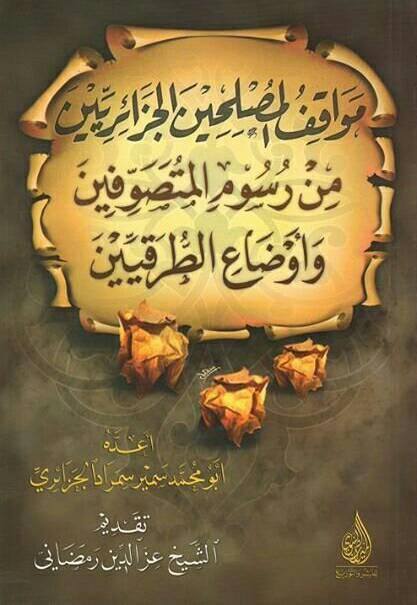 مَوَاقِفُ المُصْلِحِينَ الجَزَائِرِيِّينَ
مِنْ رُسُومِ المُتَصَوِّفِينَ
وَأَوْضَاعِ الطُّرُقِيِّينَ
أعدّه
أبو محمد سمير سمراد الجزائري
تقديم
الشيخ عز الدين رمضاني
للنشر والتوزيع